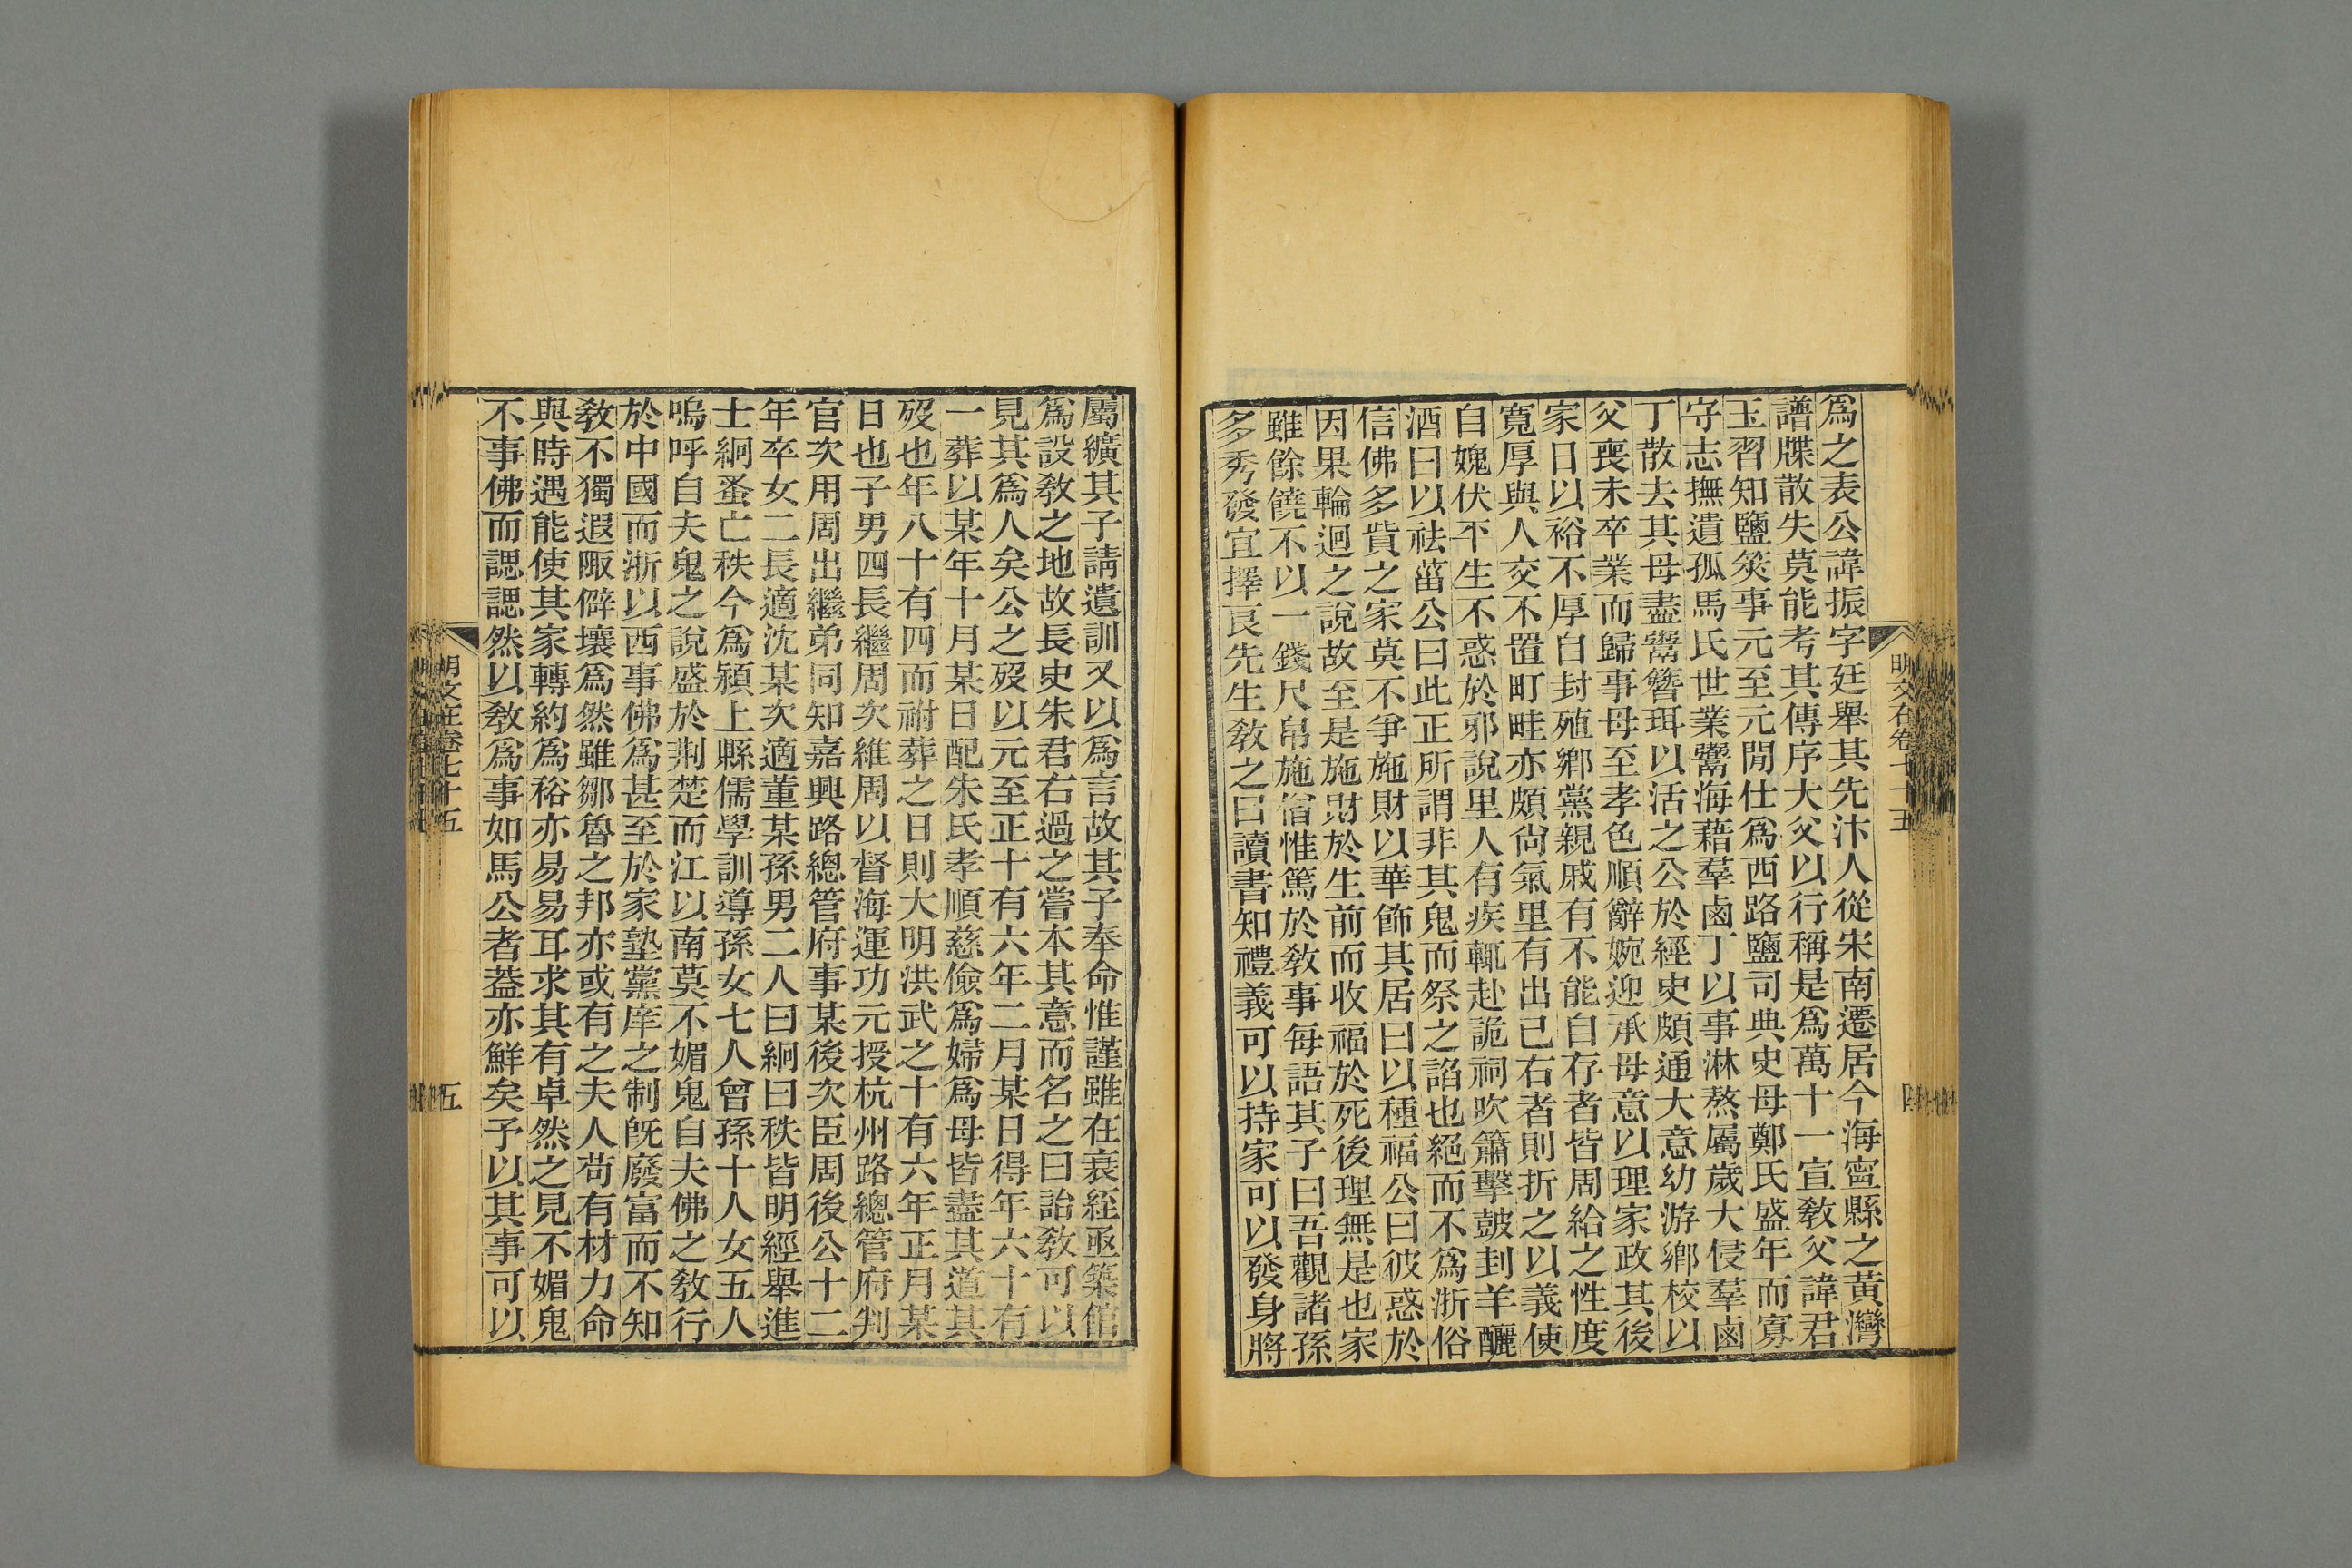 爲之表公諱振字廷舉其先汴人從宋南遷居今海寧縣之黃灣
譜牒散失莫能考其傳序大父以行稱是爲萬十一宣敎父諱君
玉習知鹽筴事元至元閒仕爲西路鹽司典史母鄭氏盛年而寡
守志撫遺孤馬氏世業鬻海藉羣鹵丁以事淋熬屬歲大侵羣鹵
丁散去其母盡鬻簪珥以活之公於經史頗通大意幼游鄉校以
父喪未卒業而歸事母至孝色順辭婉迎承母意以理家政其後
家日以裕不厚自封殖鄉黨親戚有不能自存者皆周給之性度
寬厚與人交不置町畦亦頗尙氣里有出己右者則折之以義使
自媿伏平生不惑於邪說里人有疾輒赴詭祠吹簫擊皷刲羊釃
酒曰以祛菑公曰此正所謂非其鬼而祭之諂也絕而不爲浙俗
信佛多貲之家莫不爭施財以華飾其居曰以種福公曰彼惑於
因果輪迴之說故至是施財於生前而收福於死後理無是也家
雖餘饒不以一錢尺帛施僧惟篤於敎事每語其子曰吾觀諸孫
多秀發宜擇良先生敎之曰讀書知禮義可以持家可以發身將
明文在卷七十五
屬纊其子請遺訓又以爲言故其子奉命惟謹雖在衰絰亟築館
爲設敎之地故長史朱君右過之嘗本其意而名之曰詒敎可以
見其爲人矣公之歿以元至正十有六年二月某日得年六十有
一葬以某年十月某日配朱氏孝順慈儉爲婦爲母皆盡其道其
歿也年八十有四而祔葬之日則大明洪武之十有六年正月某
日也子男四長繼周次維周以督海運功元授杭州路總管府判
官次用周出繼弟同知嘉興路總管府事某後次臣周後公十二
年卒女二長適沈某次適董某孫男二人曰絅曰秩皆明經舉進
士絅蚤亡秩今爲潁上縣儒學訓導孫女七人曾孫十人女五人
嗚呼自夫鬼之說盛於荆楚而江以南莫不媚鬼自夫佛之敎行
於中國而浙以西事佛爲甚至於家塾黨庠之制旣廢富而不知
敎不獨遐陬僻壤爲然雖鄒魯之邦亦或有之夫人苟有材力命
與時遇能使其家轉約爲裕亦易易耳求其有卓然之見不媚鬼
不事佛而諰諰然以敎爲事如馬公者葢亦鮮矣予以其事可以
明文在卷七十五
五